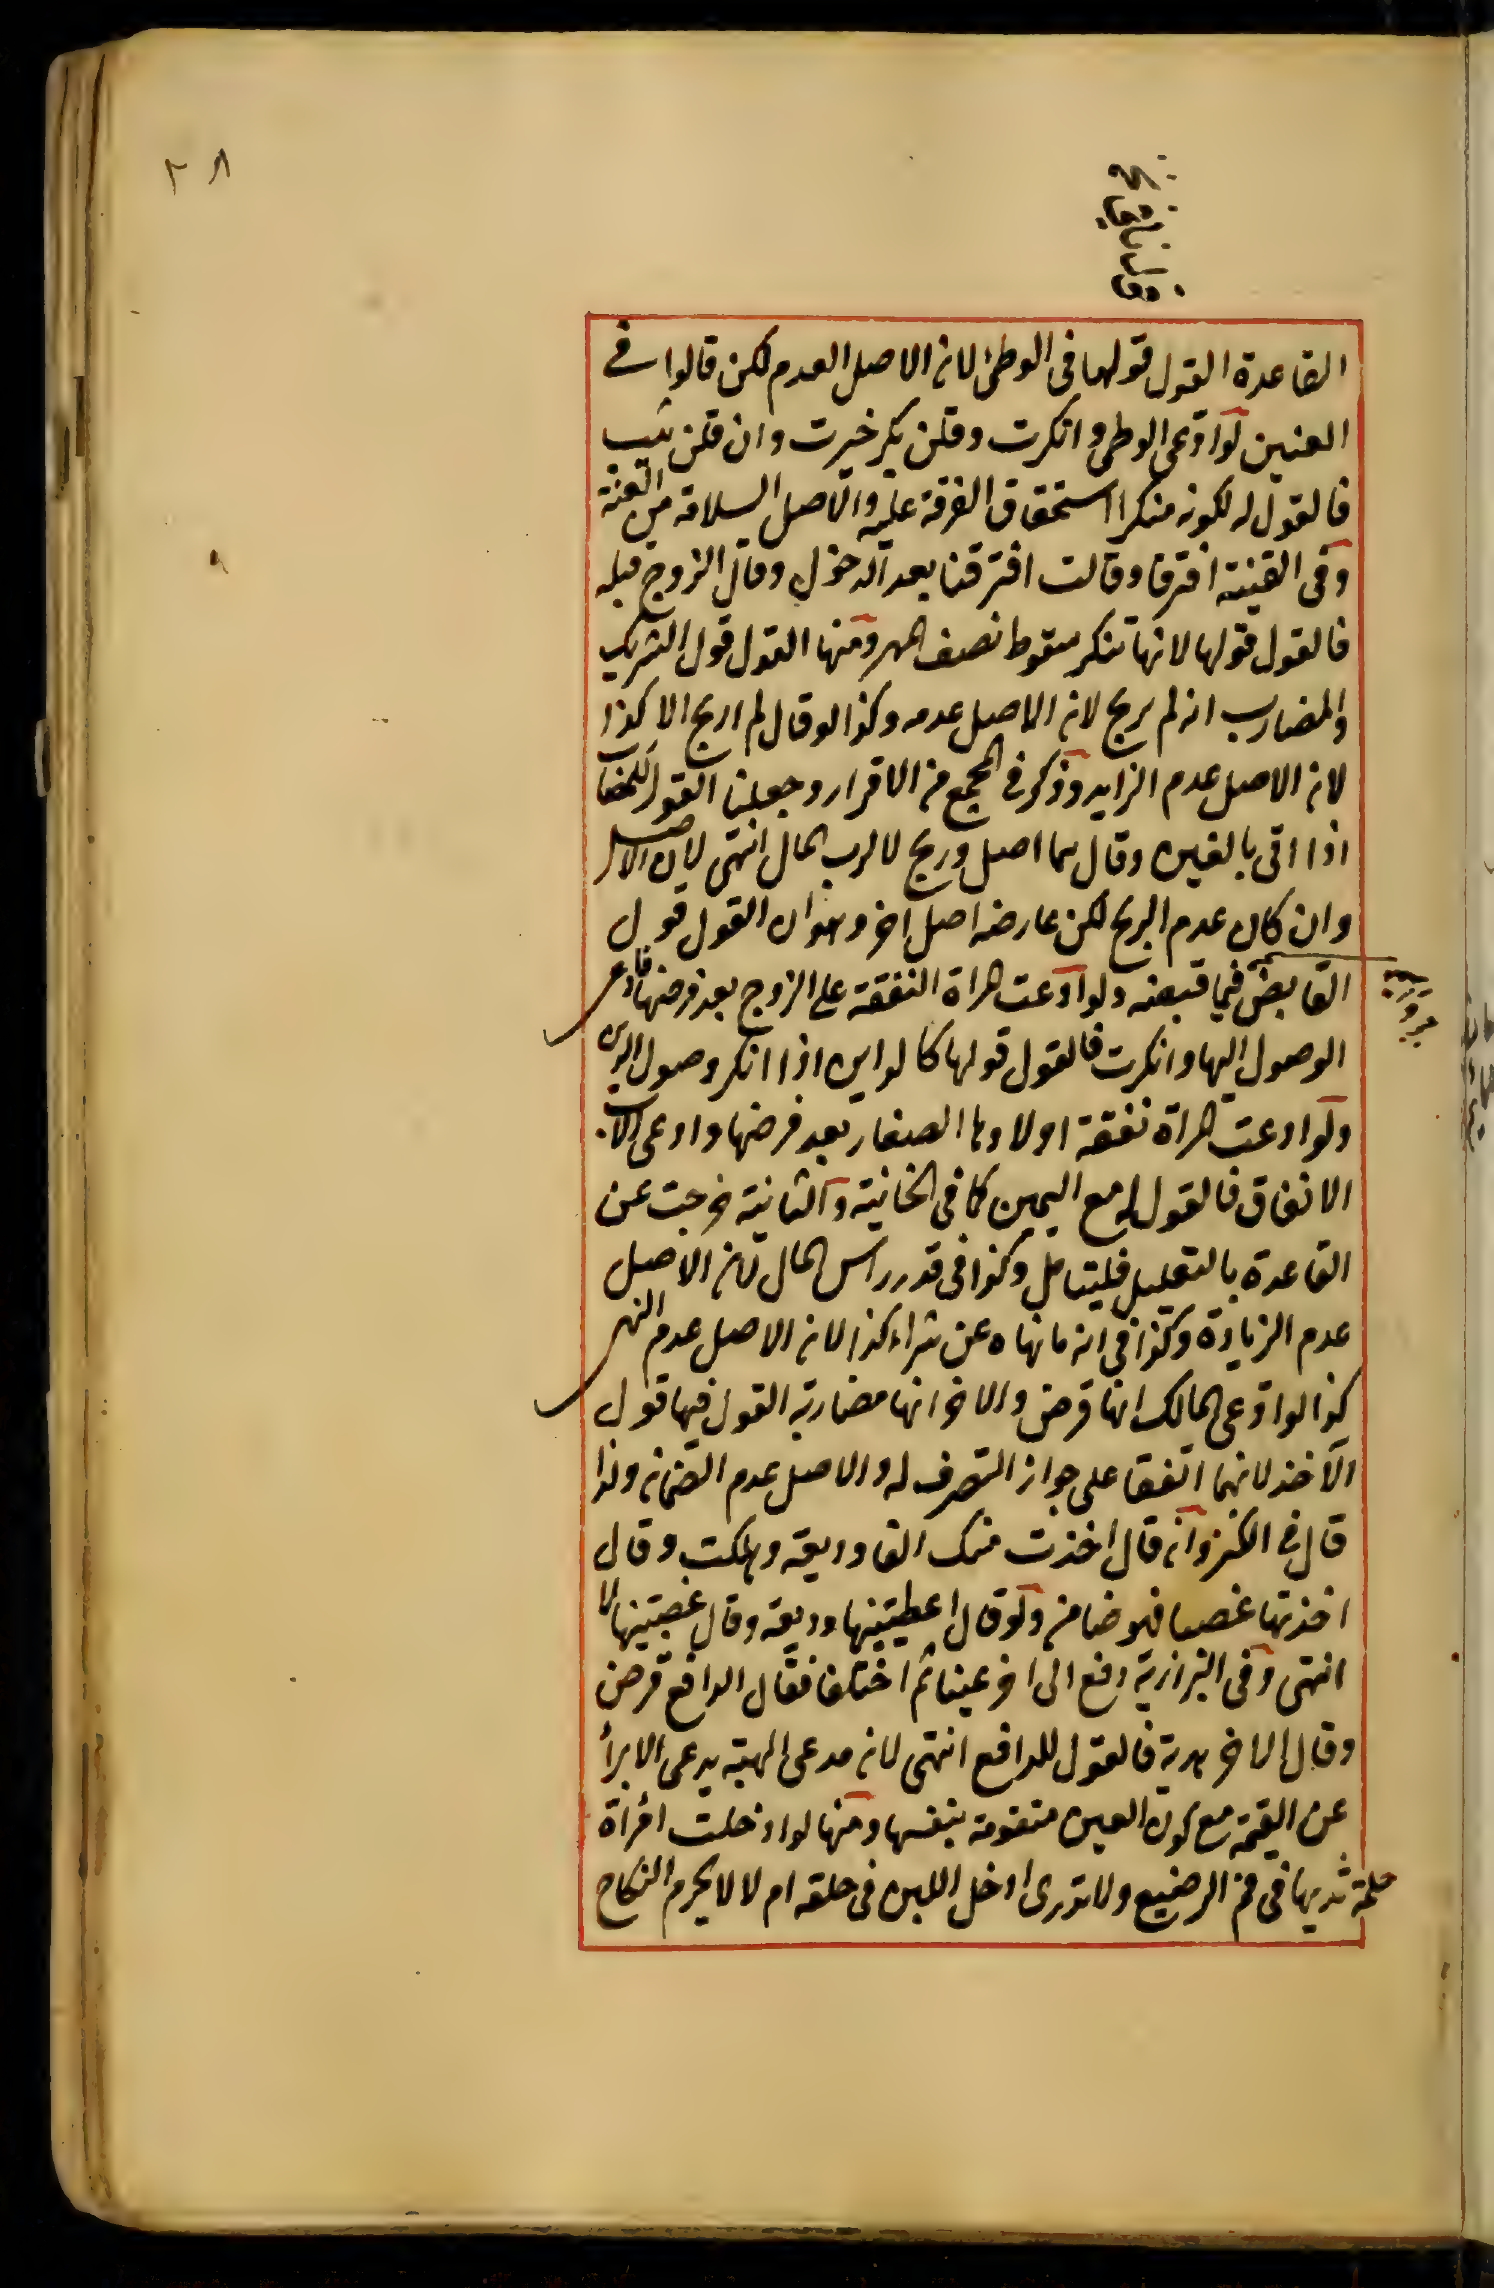 ٢٨
القاعدة القول قولها فى الوطئ لان الاصل العدم لكن قالوا فى
العنين لو ادعى الوطئ وانكرت وقلن بكر خيرت وان قلن ثيب
فالقول له لكونه منكرا استحقاق الفرقة عليه والاصل السلامة من العنة
وفى القنية افترقا وقالت افترقنا بعد الدخول وقال الزوج قبله
فالقول قولها لانها تنكر سقوط نصف المهر ومنها القول قول الشريك
والمضارب انه لم يربح لان الاصل عدمه وكذا لو قال لم اربح الا كذا
لان الاصل عدم الزايد وذكر فى المجمع من الاقرار وجعلنا القول للمضارب
اذا اتى بالفين وقال هما اصل وربح لا لرب المال انتهى لان الاصل
وان كان عدم الربح لكن عارضه اصل اخر وهو ان القول قول
القابض فيما قبضه ولو ادعت المراة النفقة على الزوج بعد فرضها فادعى
الوصول اليها وانكرت فالقول قولها كالداين اذا انكر وصول الدين
ولو ادعت المراة نفقة اولادها الصغار بعد فرضها وادعى الاب
الانفاق فالقول له مع اليمين كما فى الخانية والثانية خرجت عن
القاعدة بالتعليل فليتامل وكذا فى قدر راس المال لان الاصل
عدم الزيادة وكذا فى انه مانهاه عن شراء كذا لان الاصل عدم النهى
كذا لو ادعى المالك انها قرض والاخر انها مضاربة القول فيها قول
الآخذ لانهما اتفقا على جواز التصرف له والاصل عدم الضمان ولذا
قال فى الكنز وان قال اخذت منك الفا وديعة وهلكت وقال
اخذتها غصبا فهو ضامن ولو قال اعطيتنيها وديعة وقال غصبتنيها لا
انتهى وفى البزازية دفع الى اخر عينا ثم اختلفا فقال الدافع قرض
وقال الاخر هدية فالقول للدافع انتهى لان مدعى الهبة يدعى الابراء
عن القيمة مع كون العين متقومة بنفسها ومنها لو ادخلت امراة
حلمة ثديها فى فم الرضيع ولا تدرى ادخل اللبن فى حلقه ام لا لا يحرم النكاح